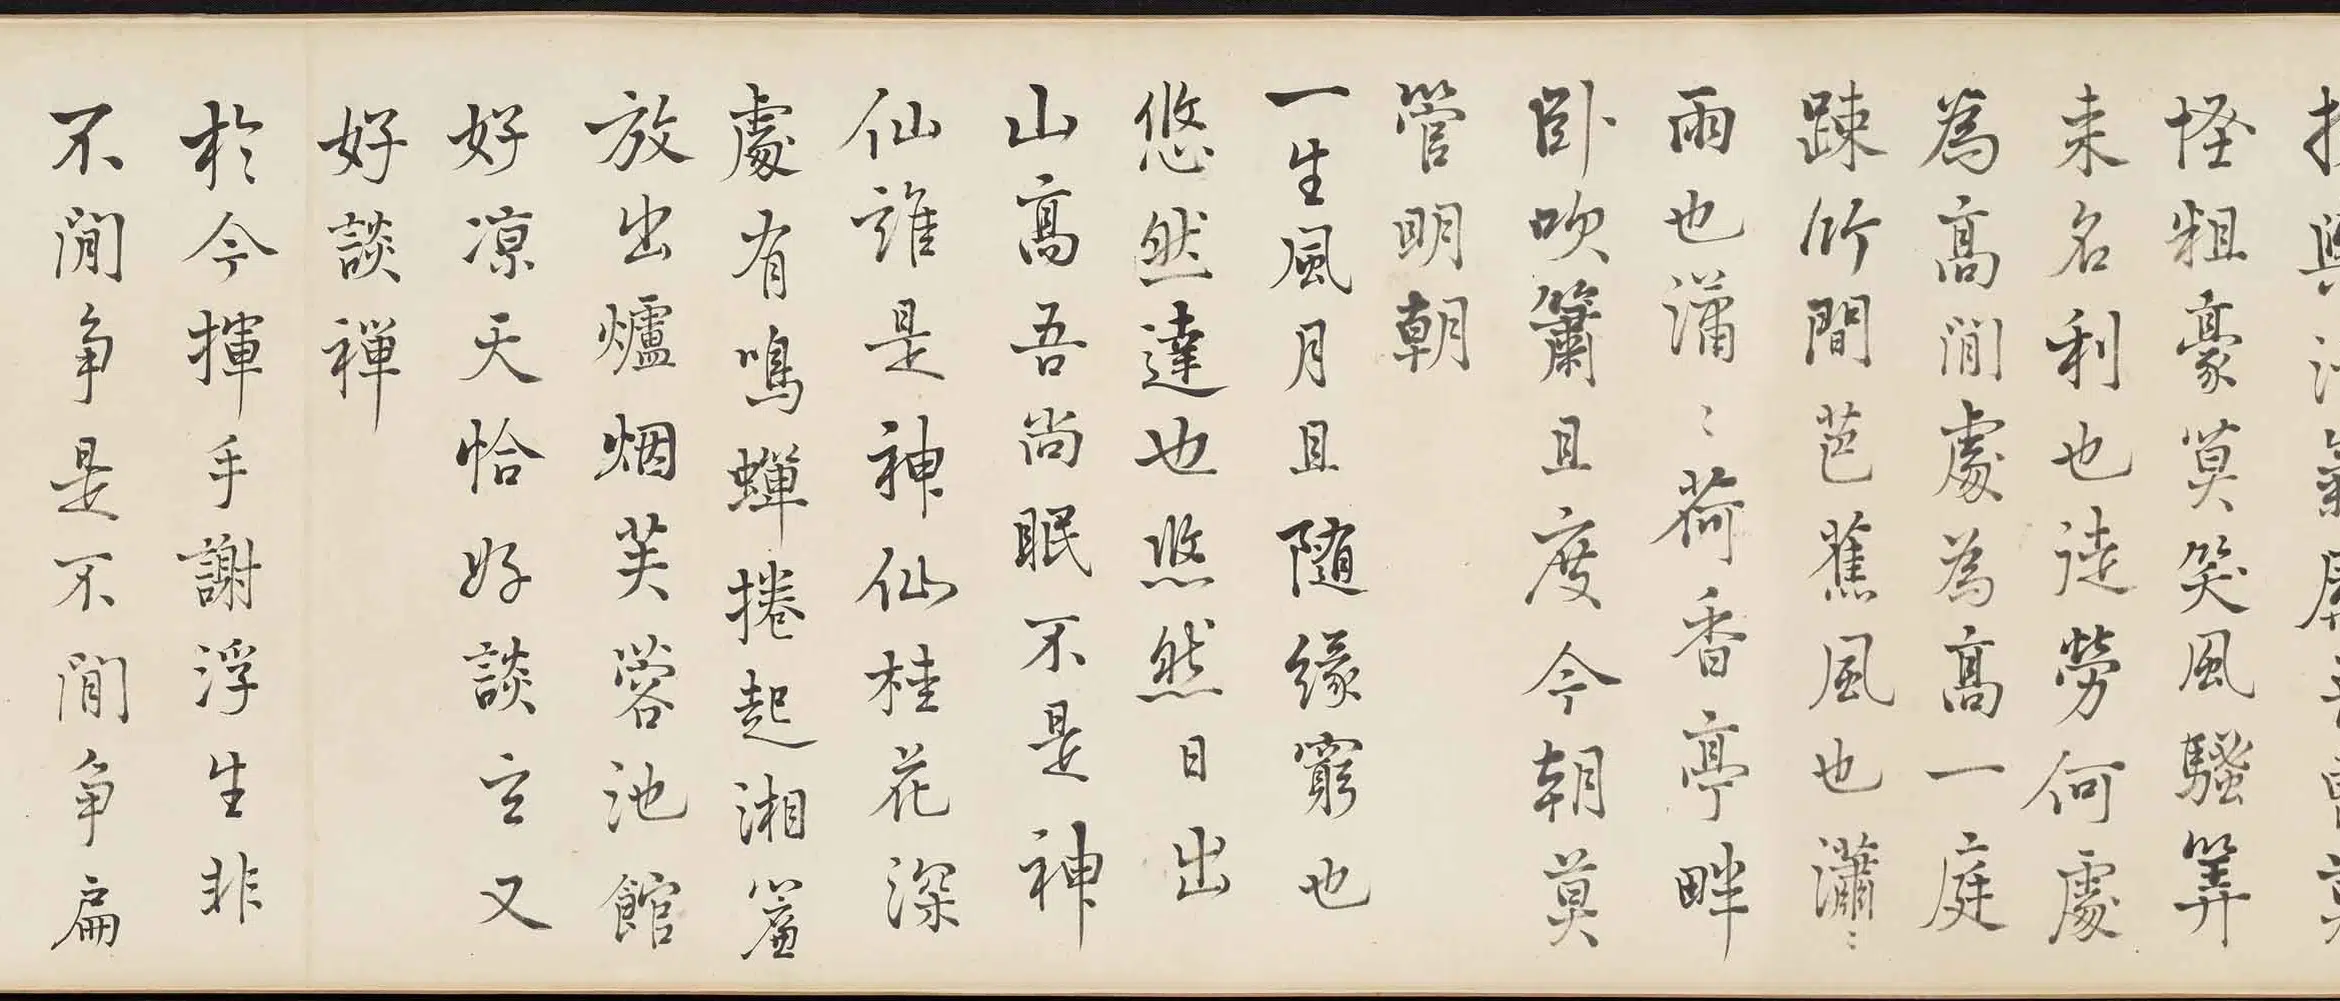 與
怪粗豪莫笑風騷筭
来名利也徒勞何處
為高閒處為高一庭
踈竹間芭蕉風也瀟〻
雨也瀟〻荷香亭畔
卧吹簫且度今朝莫
管明朝
一生風月且随緣窮也
悠然達也悠然日出
山高吾尚眠不是神
仙誰是神仙桂花深
處有鳴蟬捲起湘簾
放出爐烟芙蓉池館
好凉天恰好談玄又
好談禅
於今揮手謝浮生非
不閒争是不閒争扁